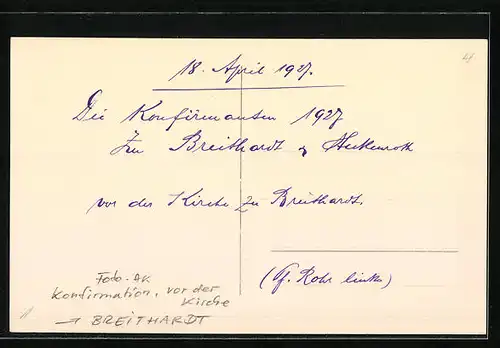 18. April 1927.
Die Konfirmanten 1927
zu Breithardt & Steckenroth
vor der Kirche zu Breithardt.
(Pf. Rohr links)
Foto-AK
Konfirmation, vor der
Kirche
→ BREITHARDT